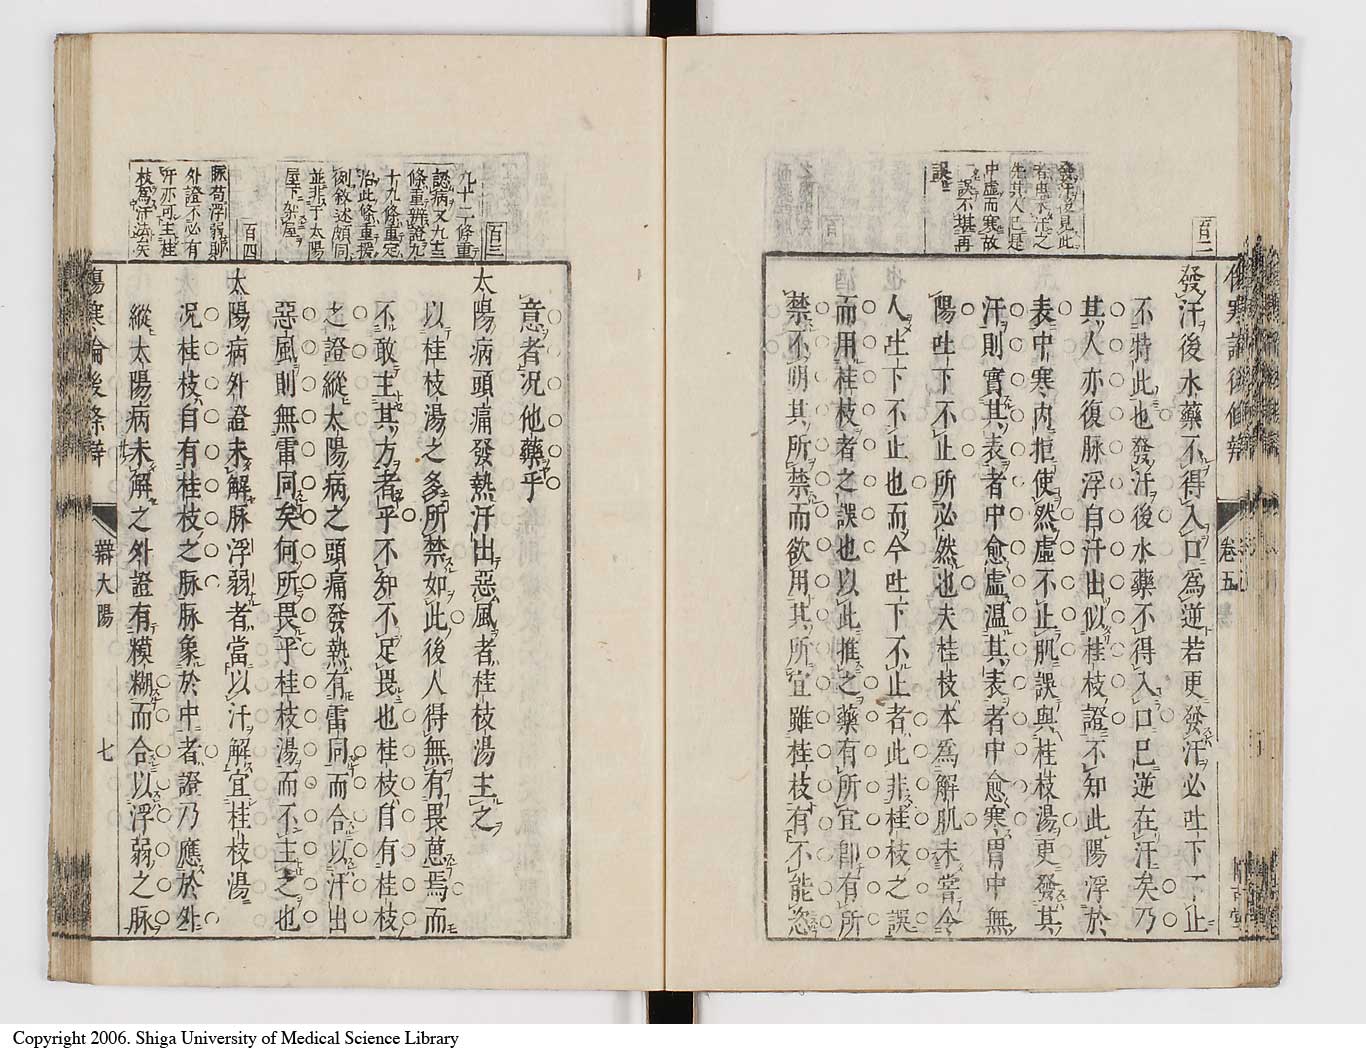 百二
發汗後見此
者由下泄之
先其人已是
中虛而寒故
一誤不堪再
誤
發汗後水藥不得入口爲逆若更發汗必吐下不止
不特此也發汗後水藥不得入口已逆在汗矣乃
其人亦復脉浮自汗出似桂枝證不知此陽浮於
表中寒內拒使然虛不止肌誤與桂枝湯更發其
汗則實其表者中愈虛溫其表者中愈寒胃中無
陽吐下不止所必然也夫桂枝本爲解肌未嘗令
人吐下不止也而今吐下不止者此非桂枝之誤
而用桂枝者之誤也以此推之藥有所宜卽有所
禁不明其所禁而欲用其所宜雖桂枝有不能恣
卷五
意者况他藥乎
百三
九十二條重
認病又九十三
條重辨證九
十九條重定
治此條重援
例敘述頗同
並非于太陽
屋下架屋
太陽病頭痛發熱汗出惡風者桂枝湯主之
以桂枝湯之多所禁如此後人得無有畏葸焉而
不敢主其方者乎不知不足畏也桂枝自有桂枝
之證縱太陽病之頭痛發熱有雷同而合以汗出
惡風則無雷同矣何所畏乎桂枝湯而不主之也
百四
脈苟浮弱則
外證不必有
汗亦可主桂
枝爲汗法矣
太陽病外證未解脉浮弱者當以汗解宜桂枝湯
况桂枝自有桂枝之脉脉象於中者證乃應於外
縱太陽病未解之外證有模糊而合以浮弱之脉
傷寒論後條辨
辨太陽
七
Copyright 2006. Shiga University of Medical Science Library